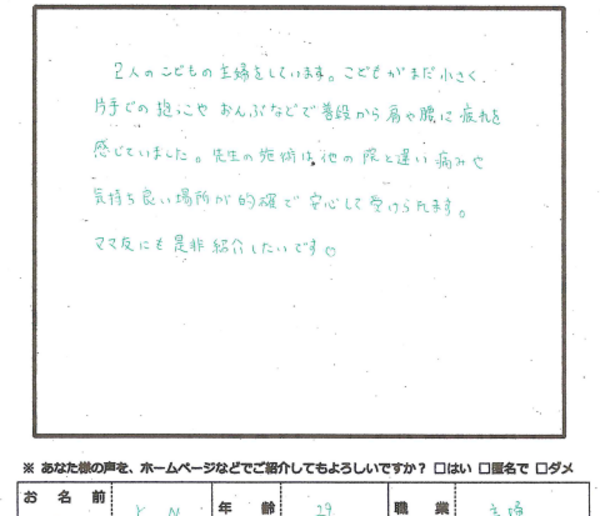 2人のこどもの主婦をしています。こどもがまだ小さく、
片手での抱っこや おんぶなどで普段から肩や腰に疲れを
感じていました。先生の施術は、他の院と違い痛みや
気持ち良い場所が的確で安心して受けられます。
ママ友にも是非紹介したいです♡
※ あなた様の声を、ホームページなどでご紹介してもよろしいですか？ □はい □匿名で □ダメ
お名前 Y N 年齢 29 職業 主婦